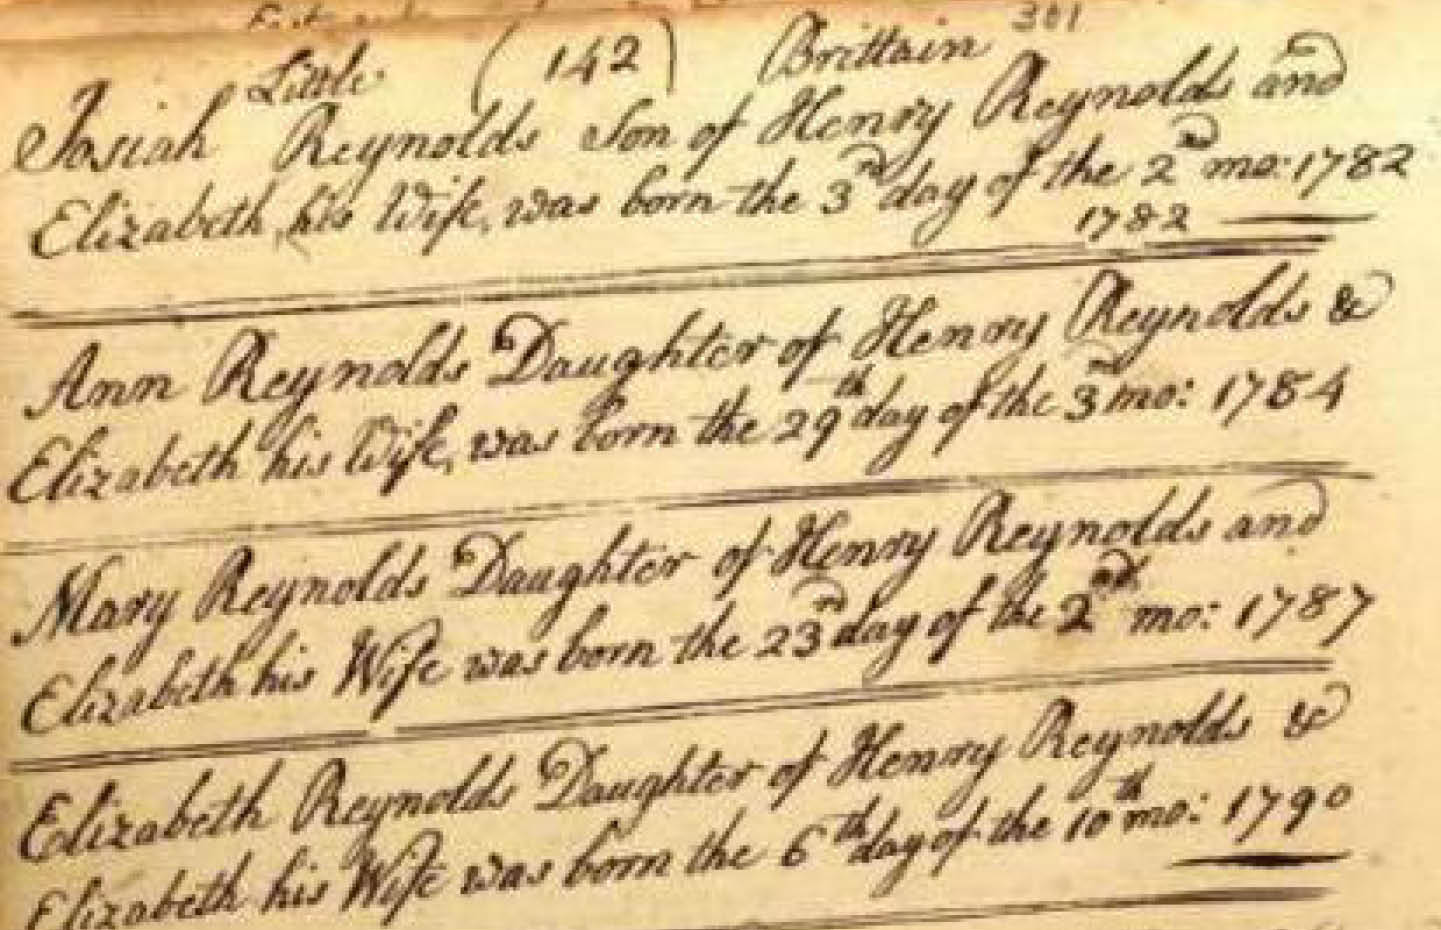 301
Little (142) Brittain
Josiah Reynolds Son of Henry Reynolds and
Elizabeth his Wife, was born the 3rd day of the 2nd mo: 1782
1782
Ann Reynolds Daughter of Henry Reynolds &
Elizabeth his Wife, was born the 29th day of the 3rd mo: 1784
Mary Reynolds Daughter of Henry Reynolds and
Elizabeth his Wife was born the 23rd day of the 2nd mo: 1787
Elizabeth Reynolds Daughter of Henry Reynolds &
Elizabeth his Wife was born the 6th day of the 10th mo: 1790